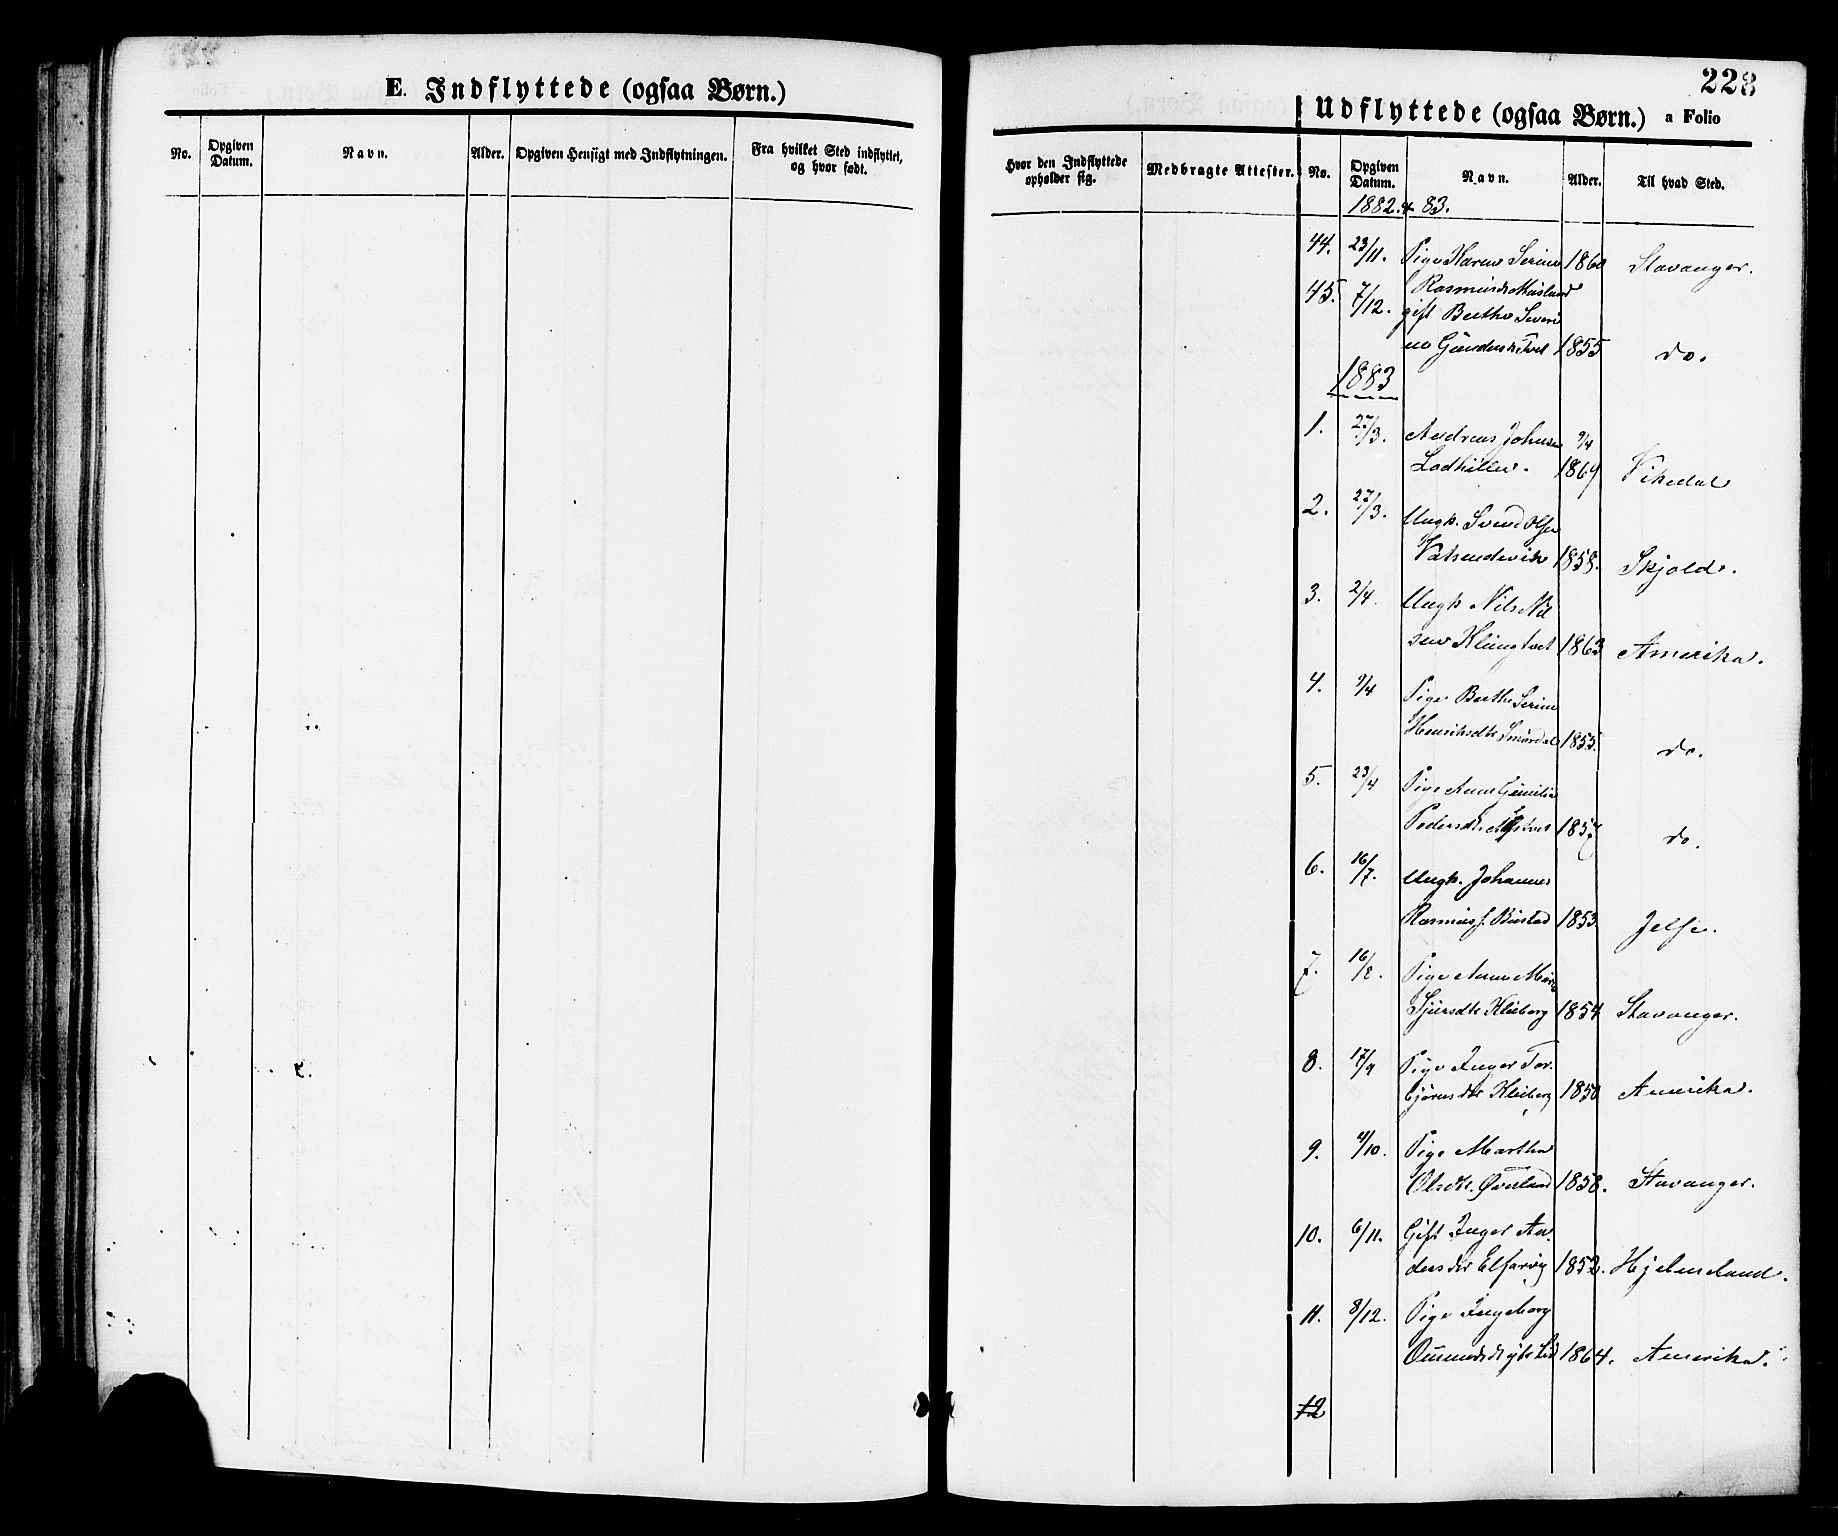 228
E. Indflyttede (ogsaa Børn.)
No. Opgiven Datum. Navn. Alder. Opgiven Hensigt med Indflytningen. Fra hvilket Sted indflyttet, og hvor født.
Udflyttede (ogsaa Børn.) a Folio
Hvor den Indflyttede opholder sig. Medbragte Attester. No. Opgiven Datum. Navn. Alder. Til hvad Sted.
1882 & 83.
44. 23/11. Pige Karen Serine 1860 Stavanger.
Rasmusdr
45. 7/12. gift Berthe Severi
ne 1855 do.
1883
1. 27/3. Andreas Johnsen 9/4
1869 Vikedal
2. 27/3. Ungk. Svend Olsen
Vatsendvik 1858. Skjold.
3. 2/4. Ungk Nils Niel
sen Klungtvet 1863 Amerika.
4. 9/4 Pige Berthe Serine
Henriksdtr 1855. do.
5. 23/4 Pige Anne
Pedersdtr 1857 do.
6. 16/7. Ungk. Johannes
Rasmuss. Bustad 1853 Jelse.
7. 16/8. Pige Anne Marie
Sjursdtr Kleiberg 1854 Stavanger.
8. 17/9 Pige Inger Tor
bjørnsdtr Kleiberg 1850 Amerika.
9. 4/10. Pige Martha
Olsdtr. Øverland 1858. Stavanger.
10. 6/11. Gift Inger An
dersdtr 1852. Hjelmeland.
11. 8/12. Pige Ingeborg
1864. Amerika.
12